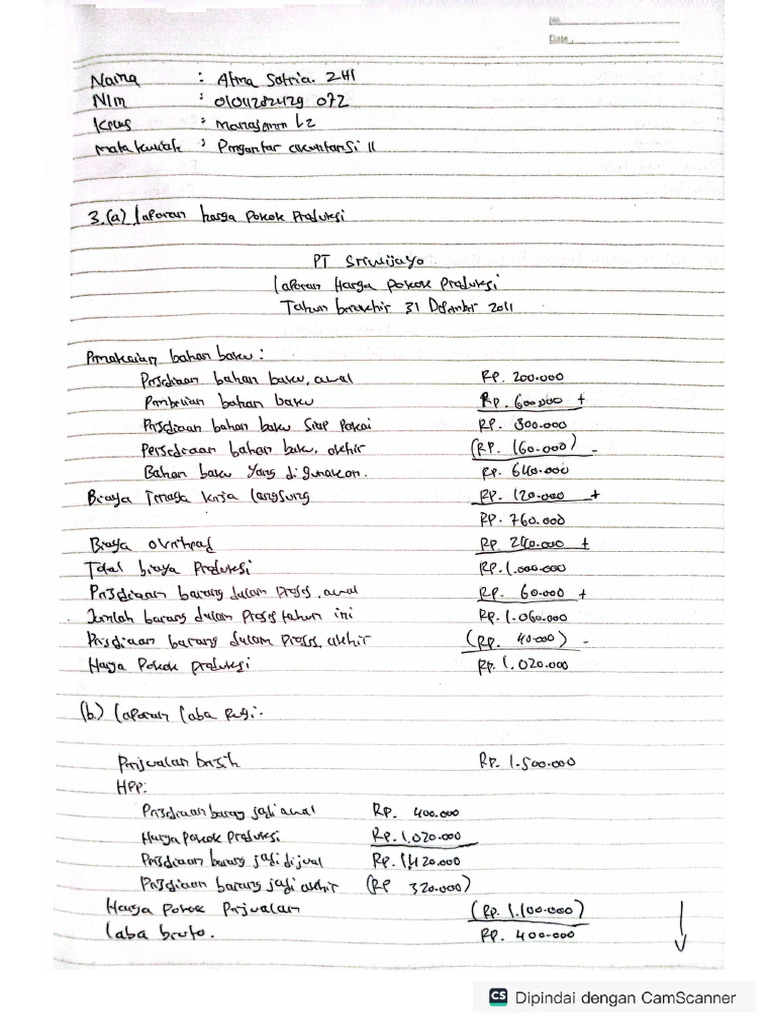 No.
Date.
Nama : Atma Satria. ZHI
NIM : 01011282429 072
Krus : Manajemen L2
Mata kuliah : Pengantar akuntansi II
3.(a) Laporan harga Pokok Produksi
PT Sriwijaya
Laporan Harga Pokok Produksi
Tahun berakhir 31 Desember 2011
Pemakaian bahan baku :
Persediaan bahan baku, awal Rp. 200.000
Pembelian bahan baku Rp. 600.000 +
Persediaan bahan baku Siap Pakai Rp. 800.000
Persediaan bahan baku, akhir (Rp. 160.000) -
Bahan baku yang digunakan. Rp. 640.000
Biaya Tenaga Kerja langsung Rp. 120.000 +
Rp. 760.000
Biaya overhead Rp. 240.000 +
Total biaya Produksi Rp. 1.000.000
Persediaan barang dalam Proses, awal Rp. 60.000 +
Jumlah barang dalam Proses tahun ini Rp. 1.060.000
Persdiaan barang dalam Proses, akhir (Rp. 40.000) -
Harga Pokok produksi Rp. 1.020.000
(b.) Laporan Laba Rugi.
Penjualan bersih Rp. 1.500.000
HPP:
Persediaan barang jadi awal Rp. 400.000
Harga Pokok Produksi Rp. 1.020.000
Persediaan barang jadi dijual Rp. 1,420.000
Persediaan barang jadi akhir (Rp 320.000)
Harga Pokok Penjualan (Rp. 1.100.000)
Laba bruto. Rp. 400.000
CS Dipindai dengan CamScanner